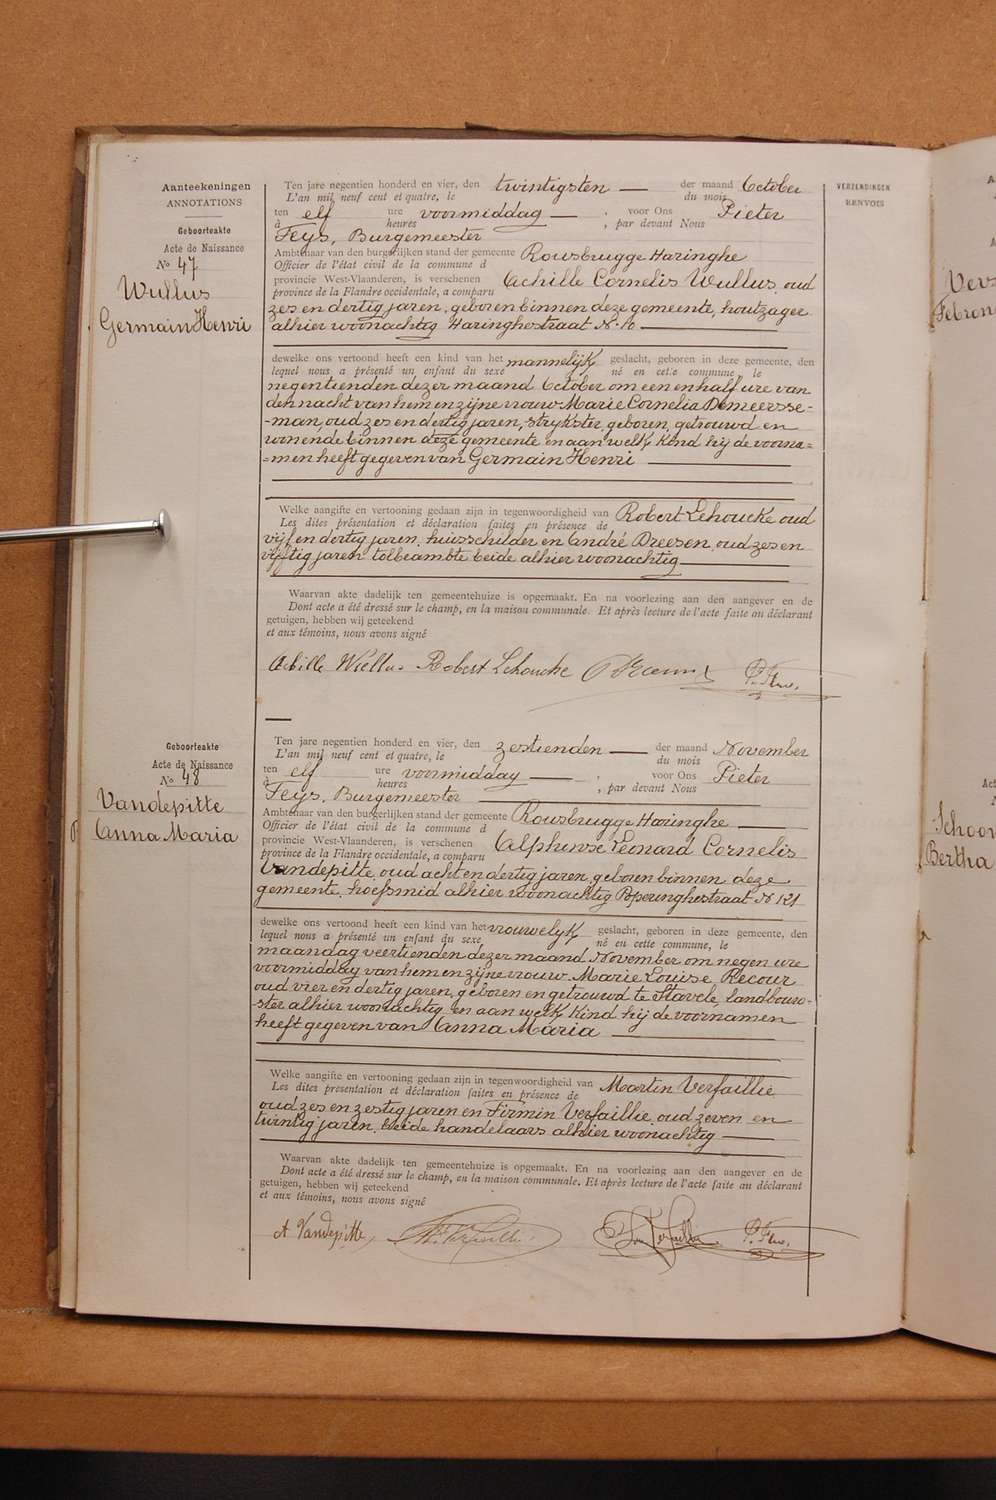 Aanteekeningen
ANNOTATIONS
Geboorteakte
Acte de Naissance
No 47
Wullus
Germain Henri
VERZENDINGEN
RENVOIS
Ten jare negentien honderd en vier, den twintigsten — der maand October
L'an mil neuf cent et quatre, le du mois
ten elf ure voormiddag — , voor Ons Pieter
à heures , par devant Nous
Feys, Burgemeester
Ambtenaar van den burgerlijken stand der gemeente Rousbrugge Haringhe
Officier de l'état civil de la commune d
provincie West-Vlaanderen, is verschenen Achille Cornelis Wullus, oud
province de la Flandre occidentale, a comparu
zes en dertig jaren, geboren binnen deze gemeente, houtzager
alhier woonachtig Haringhestraat No 10 —
dewelke ons vertoond heeft een kind van het mannelijk geslacht, geboren in deze gemeente, den
lequel nous a présenté un enfant du sexe né en cette commune, le
negentienden dezer maand October om een en half ure van
den nacht van hem en zijne vrouw Marie Cornelia Demeersse-
-man, oud zes en dertig jaren, strykster, geboren, getrouwd en
wonende binnen deze gemeente en aan welk kind hij de voorna=
=men heeft gegeven van Germain Henri —
Welke aangifte en vertooning gedaan zijn in tegenwoordigheid van Robert Lehoucke oud
Les dites présentation et déclaration faites en présence de
vijf en dertig jaren, huisschilder en André Dreesen, oud zes en
vijftig jaren tolbeambte beide alhier woonachtig —
Waarvan akte dadelijk ten gemeentehuize is opgemaakt. En na voorlezing aan den aangever en de
Dont acte a été dressé sur le champ, en la maison communale. Et après lecture de l'acte faite au déclarant
getuigen, hebben wij geteekend
et aux témoins, nous avons signé
Achille Wullus Robert Lehoucke P. Feys,
Geboorteakte
Acte de Naissance
No 48
Vandepitte
Anna Maria
Ten jare negentien honderd en vier, den zestienden — der maand November
L'an mil neuf cent et quatre, le du mois
ten elf ure voormidday — , voor Ons Pieter
à heures , par devant Nous
Feys, Burgemeester —
Ambtenaar van den burgerlijken stand der gemeente Rousbrugge Haringhe —
Officier de l'état civil de la commune d
provincie West-Vlaanderen, is verschenen Alphonse Leonard Cornelis
province de la Flandre occidentale, a comparu
Vandepitte, oud acht en dertig jaren, geboren binnen deze
gemeente, hoefsmid alhier woonachtig Poperinghestraat No 121
dewelke ons vertoond heeft een kind van het vrouwelyk geslacht, geboren in deze gemeente, den
lequel nous a présenté un enfant du sexe né en cette commune, le
maandag veertienden dezer maand November om negen ure
voormiddag van hem en zijne vrouw Marie Louise Recour
oud vier en dertig jaren, geboren en getrouwd te Stavele, landbouw-
-ster alhier woonachtig en aan welk kind hij de voornamen
heeft gegeven van Anna Maria —
Welke aangifte en vertooning gedaan zijn in tegenwoordigheid van Martin Verfaillie
Les dites présentation et déclaration faites en présence de
oud zes en zestig jaren en Firmin Verfaillie, oud zeven en
twintig jaren, beide handelaars alhier woonachtig —
Waarvan akte dadelijk ten gemeentehuize is opgemaakt. En na voorlezing aan den aangever en de
Dont acte a été dressé sur le champ, en la maison communale. Et après lecture de l'acte faite au déclarant
getuigen, hebben wij geteekend
et aux témoins, nous avons signé
A Vandepitte, M. Verfaillie Firm Verfaillie P. Feys,
Vers
Febron
Schoon
Bertha